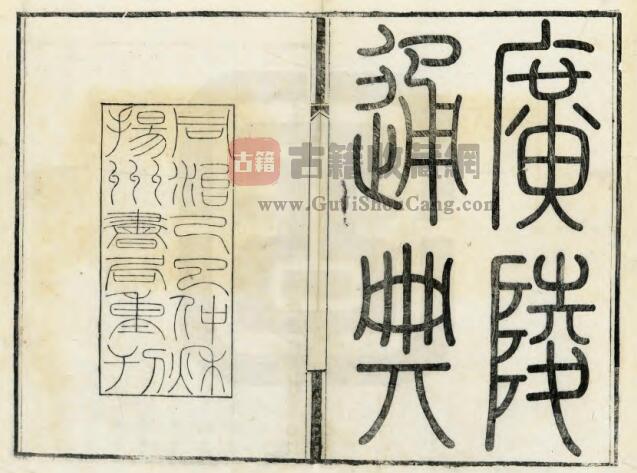 廣陵
通典
同治己巳仲秋
揚州書局重刊
古籍
古籍收藏網
www.GuJiShouCang.com